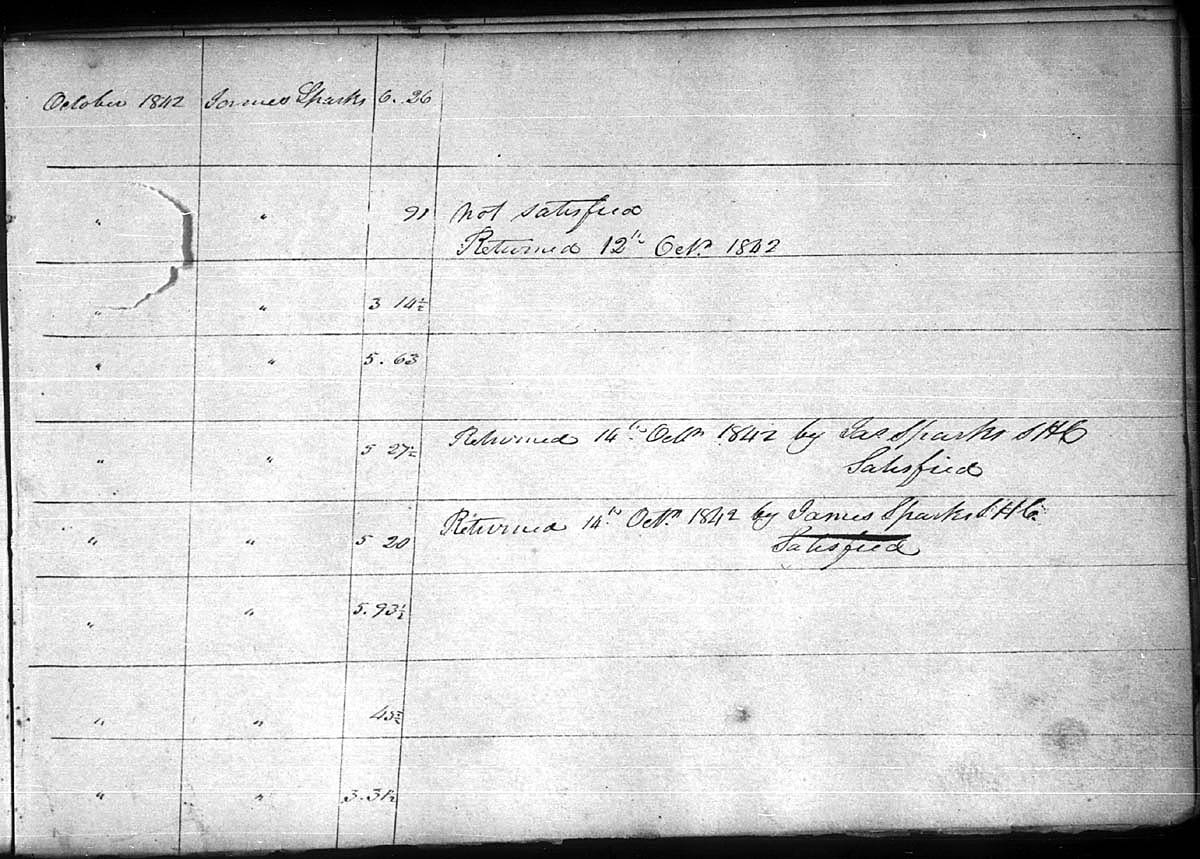 October 1842 James Sparks 6. 26
" " 91 not satisfied
Returned 12th Octr. 1842
" " 3 14½
" " 5. 63
" " 5 27½ Returned 14th Octr. 1842 by Jas Sparks S H C
Satisfied
" " 5 20 Returned 14th Octr. 1842 by James Sparks S H C.
Satisfied
" " 5. 93½
" " 45½
" " 3. 31½